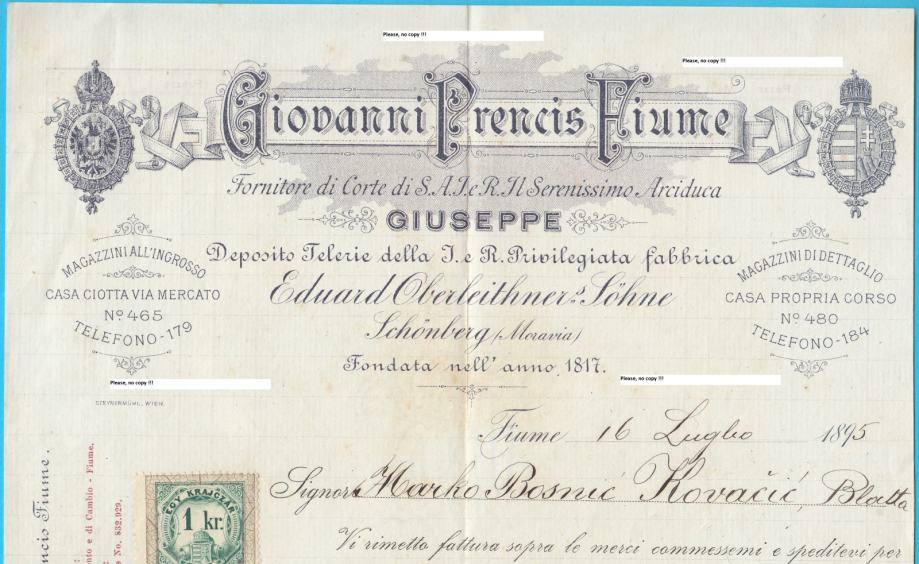 Please, no copy !!!
Please, no copy !!!
Giovanni Prencis Fiume
Fornitore di Corte di S.A.I.e R.Il Serenissimo Arciduca
GIUSEPPE
Deposito Telerie della I. e R. Privilegiata fabbrica
Eduard Oberleithner's Söhne
Schönberg (Moravia)
Fondata nell' anno 1817.
MAGAZZINI ALL'INGROSSO
CASA CIOTTA VIA MERCATO
No 465
TELEFONO-179
MAGAZZINI DI DETTAGLIO
CASA PROPRIA CORSO
No 480
TELEFONO-184
Please, no copy !!!
Please, no copy !!!
STEYRERMÜHL, WIEN.
Fiume 16 Luglio 1895
Signor Marko Bosnić Kovačić, Blatta
Vi rimetto fattura sopra le merci commessemi e speditevi per
EGY KRAJCZÁR
1 kr.
ncis Fiume.
nto e di Cambio - Fiume.
No. 832.029.